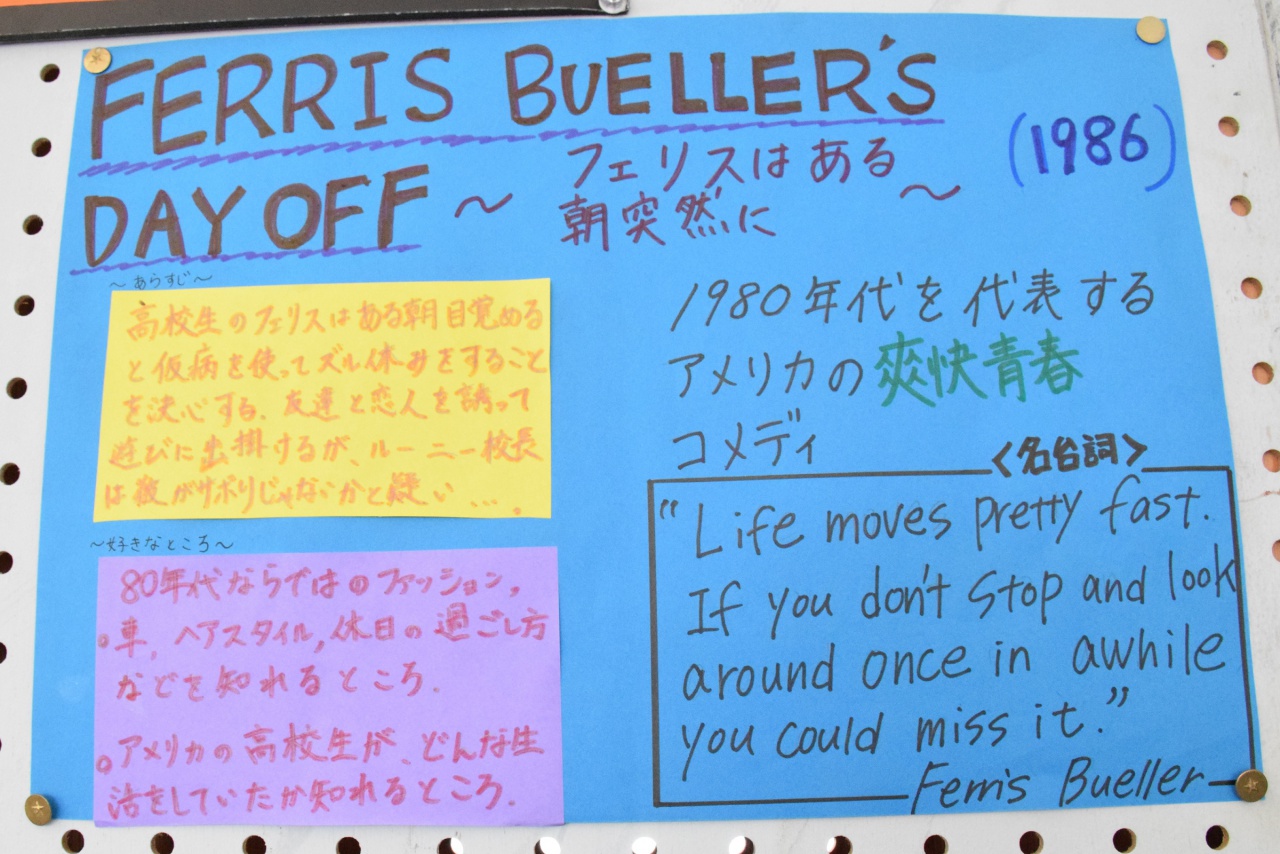 FERRIS BUELLER'S
DAY OFF ～ フェリスはある
朝突然に ～
(1986)
～あらすじ～
高校生のフェリスはある朝目覚める
と仮病を使ってズル休みをすること
を決心する。友達と恋人を誘って
遊びに出掛けるが、ルーニー校長
は彼がサボりじゃないかと疑い….
～好きなところ～
80年代ならではのファッション,
○車, ヘアスタイル, 休日の過ごし方
などを知れるところ.
○アメリカの高校生が、どんな生
活をしていたか知れるところ.
1980年代を代表する
アメリカの爽快青春
コメディ
<名台詞>
"Life moves pretty fast.
If you don't stop and look
around once in awhile
you could miss it."
Ferris Bueller